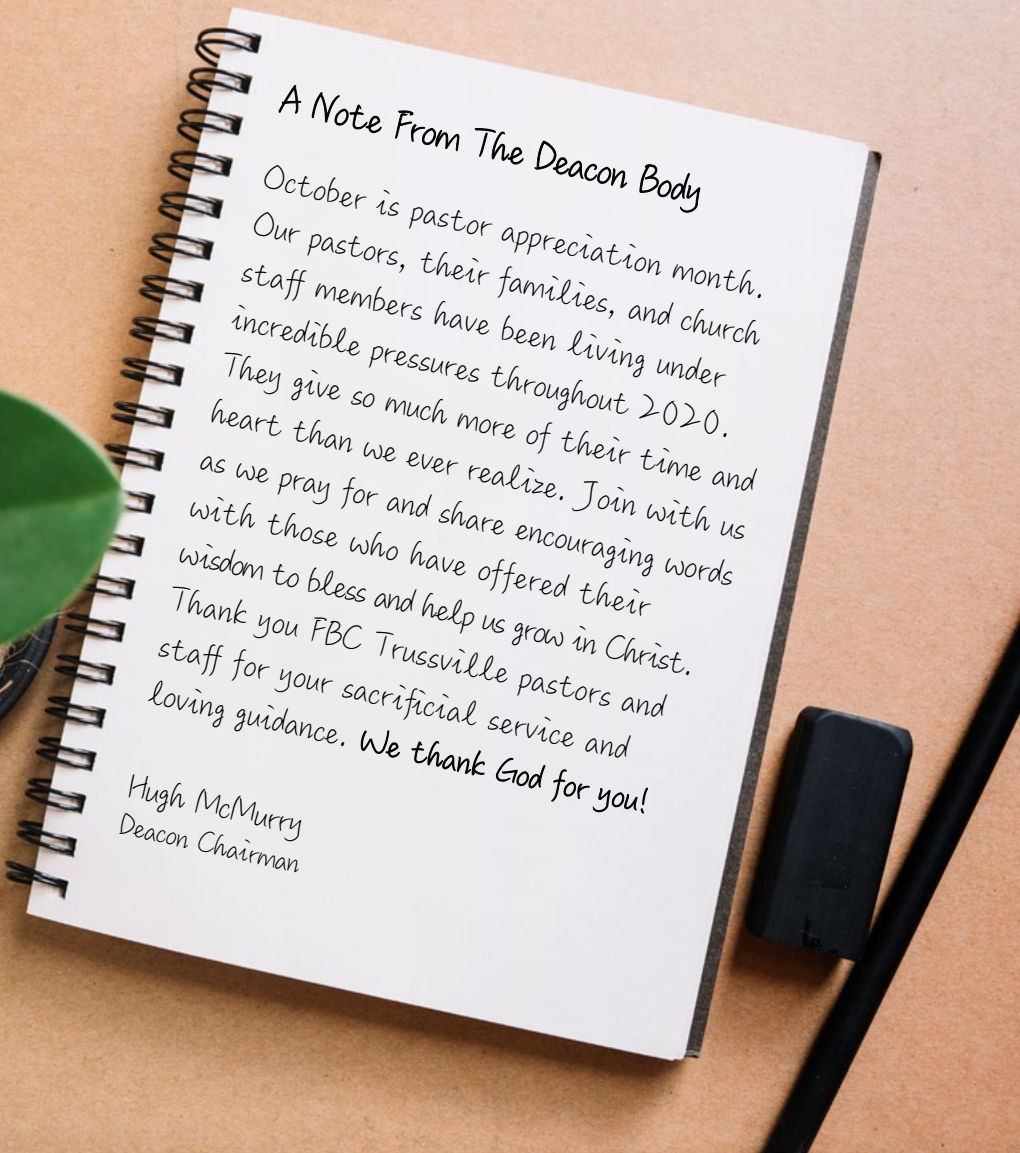 A Note From The Deacon Body
October is pastor appreciation month.
Our pastors, their families, and church
staff members have been living under
incredible pressures throughout 2020.
They give so much more of their time and
heart than we ever realize. Join with us
as we pray for and share encouraging words
with those who have offered their
wisdom to bless and help us grow in Christ.
Thank you FBC Trussville pastors and
staff for your sacrificial service and
loving guidance. We thank God for you!
Hugh McMurry
Deacon Chairman